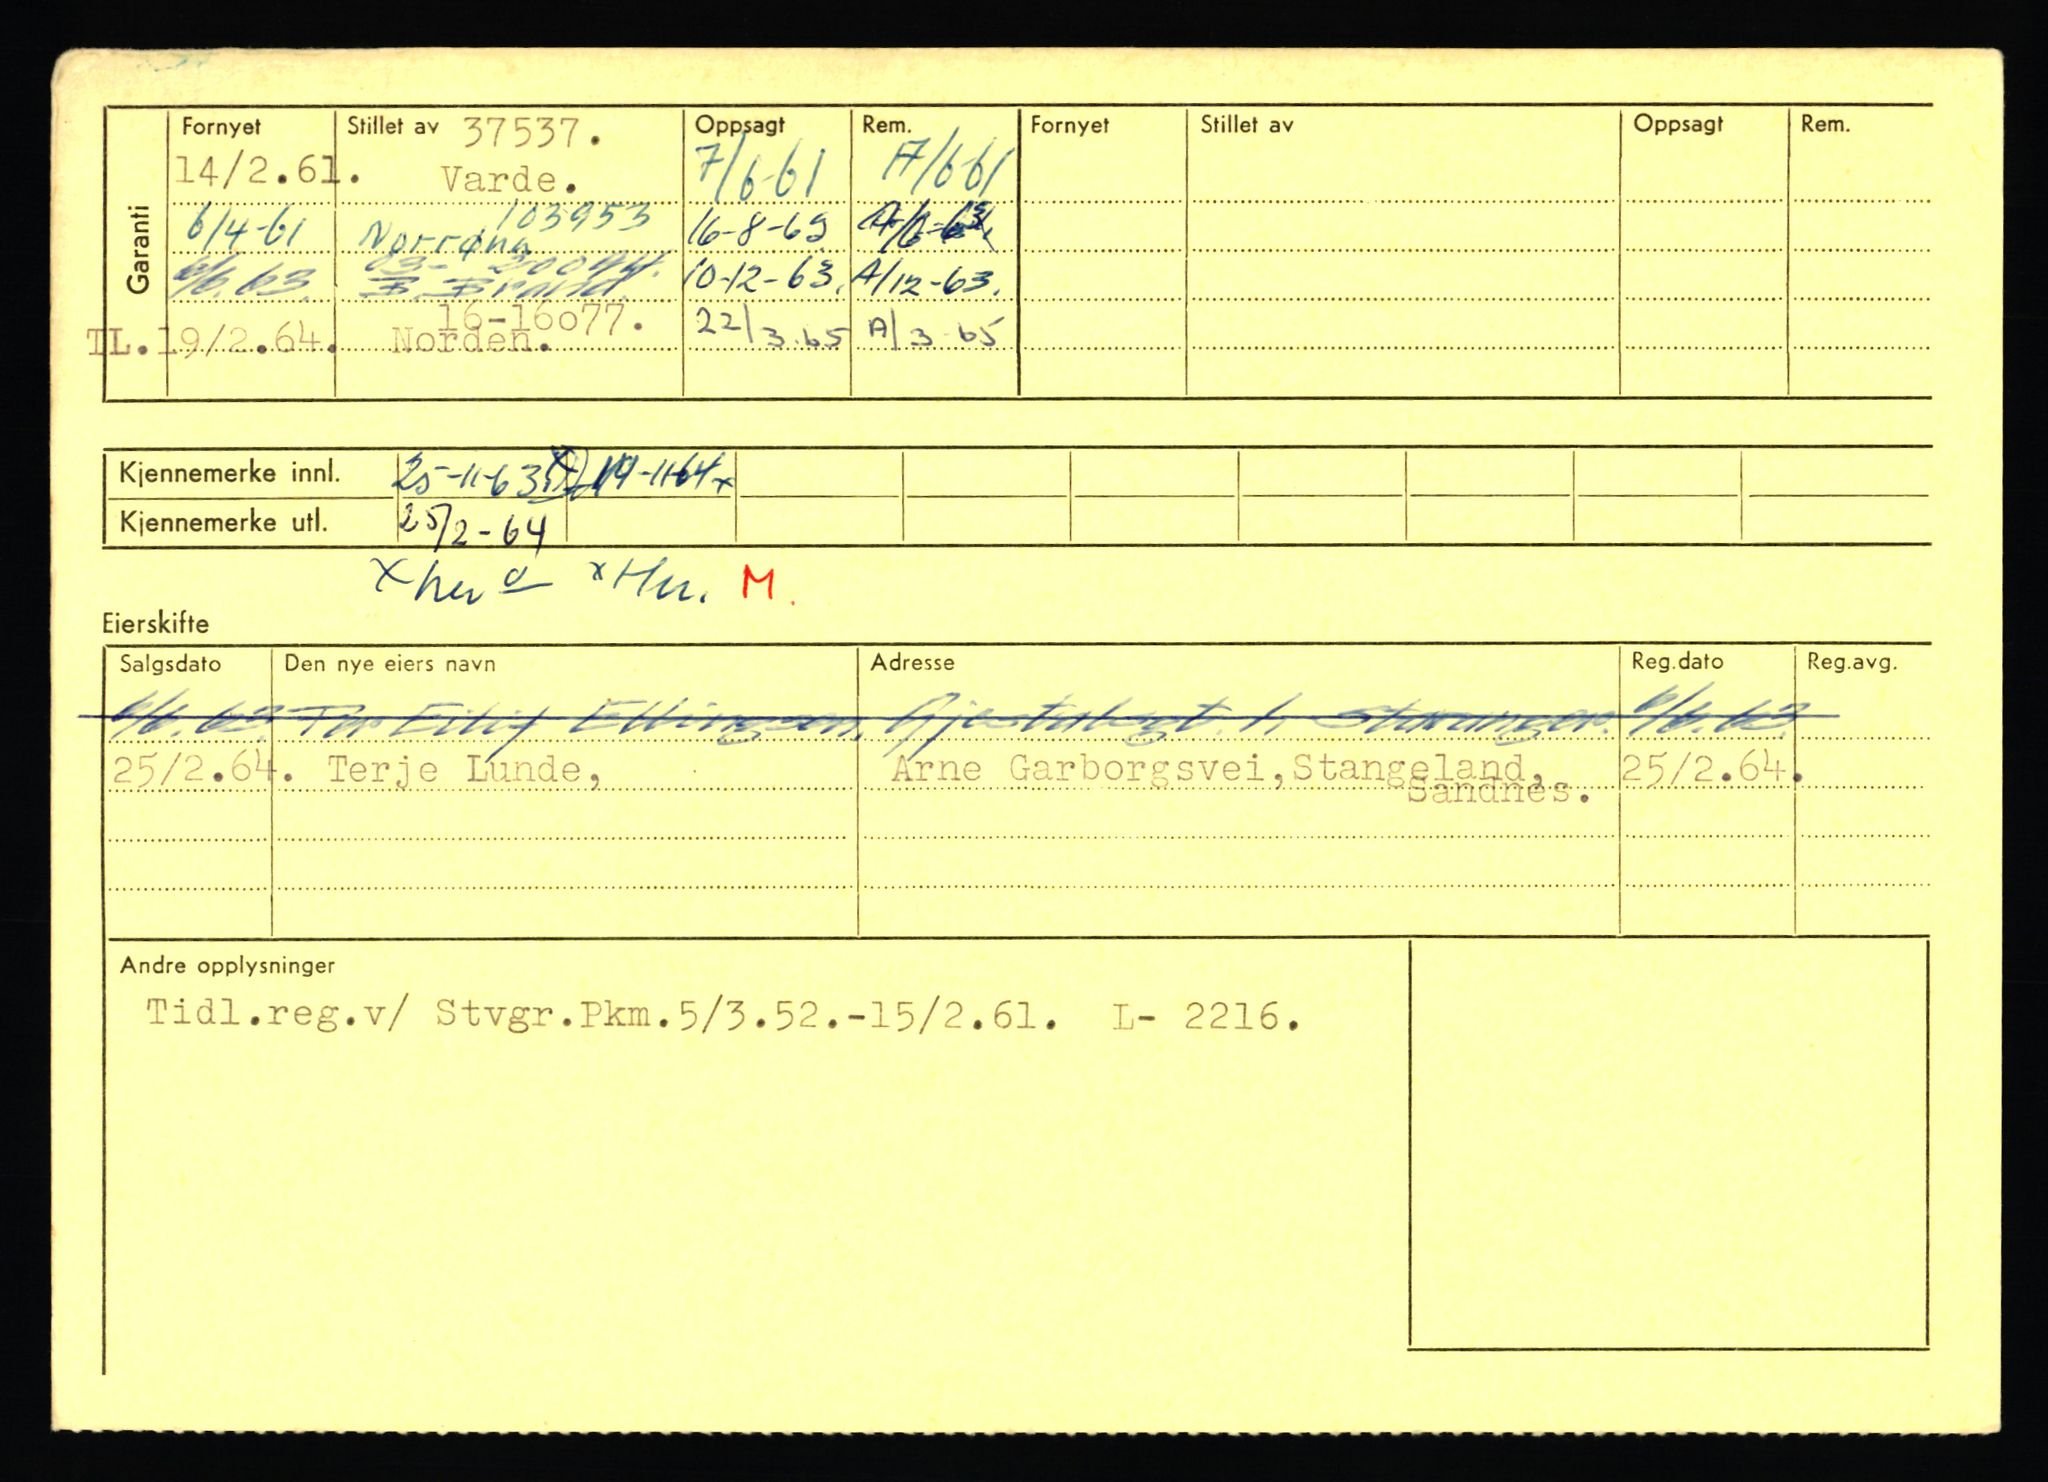 Garanti
Fornyet Stillet av Oppsagt Rem. Fornyet Stillet av Oppsagt Rem.
37537.
14/2.61. Varde. 7/6-61 A/6-61
103953
6/4-61 Norrøna 16-8-63 A/6-63
6/6.63. 10-12-63. A/12-63.
16-16o77.
TL.19/2.64. Norden. 22/3.65 A/3-65
Kjennemerke innl. 25-11-63 19-11-64x
Kjennemerke utl. 25/2-64
x her x Her. M.
Eierskifte
Salgsdato Den nye eiers navn Adresse Reg.dato Reg.avg.
6/6.63. Per Eilif Ellingsen, Stavanger. 6/6.63.
25/2.64. Terje Lunde, Arne Garborgsvei,Stangeland, 25/2.64.
Sandnes.
Andre opplysninger
Tidl.reg.v/ Stvgr.Pkm.5/3.52.-15/2.61. L- 2216.